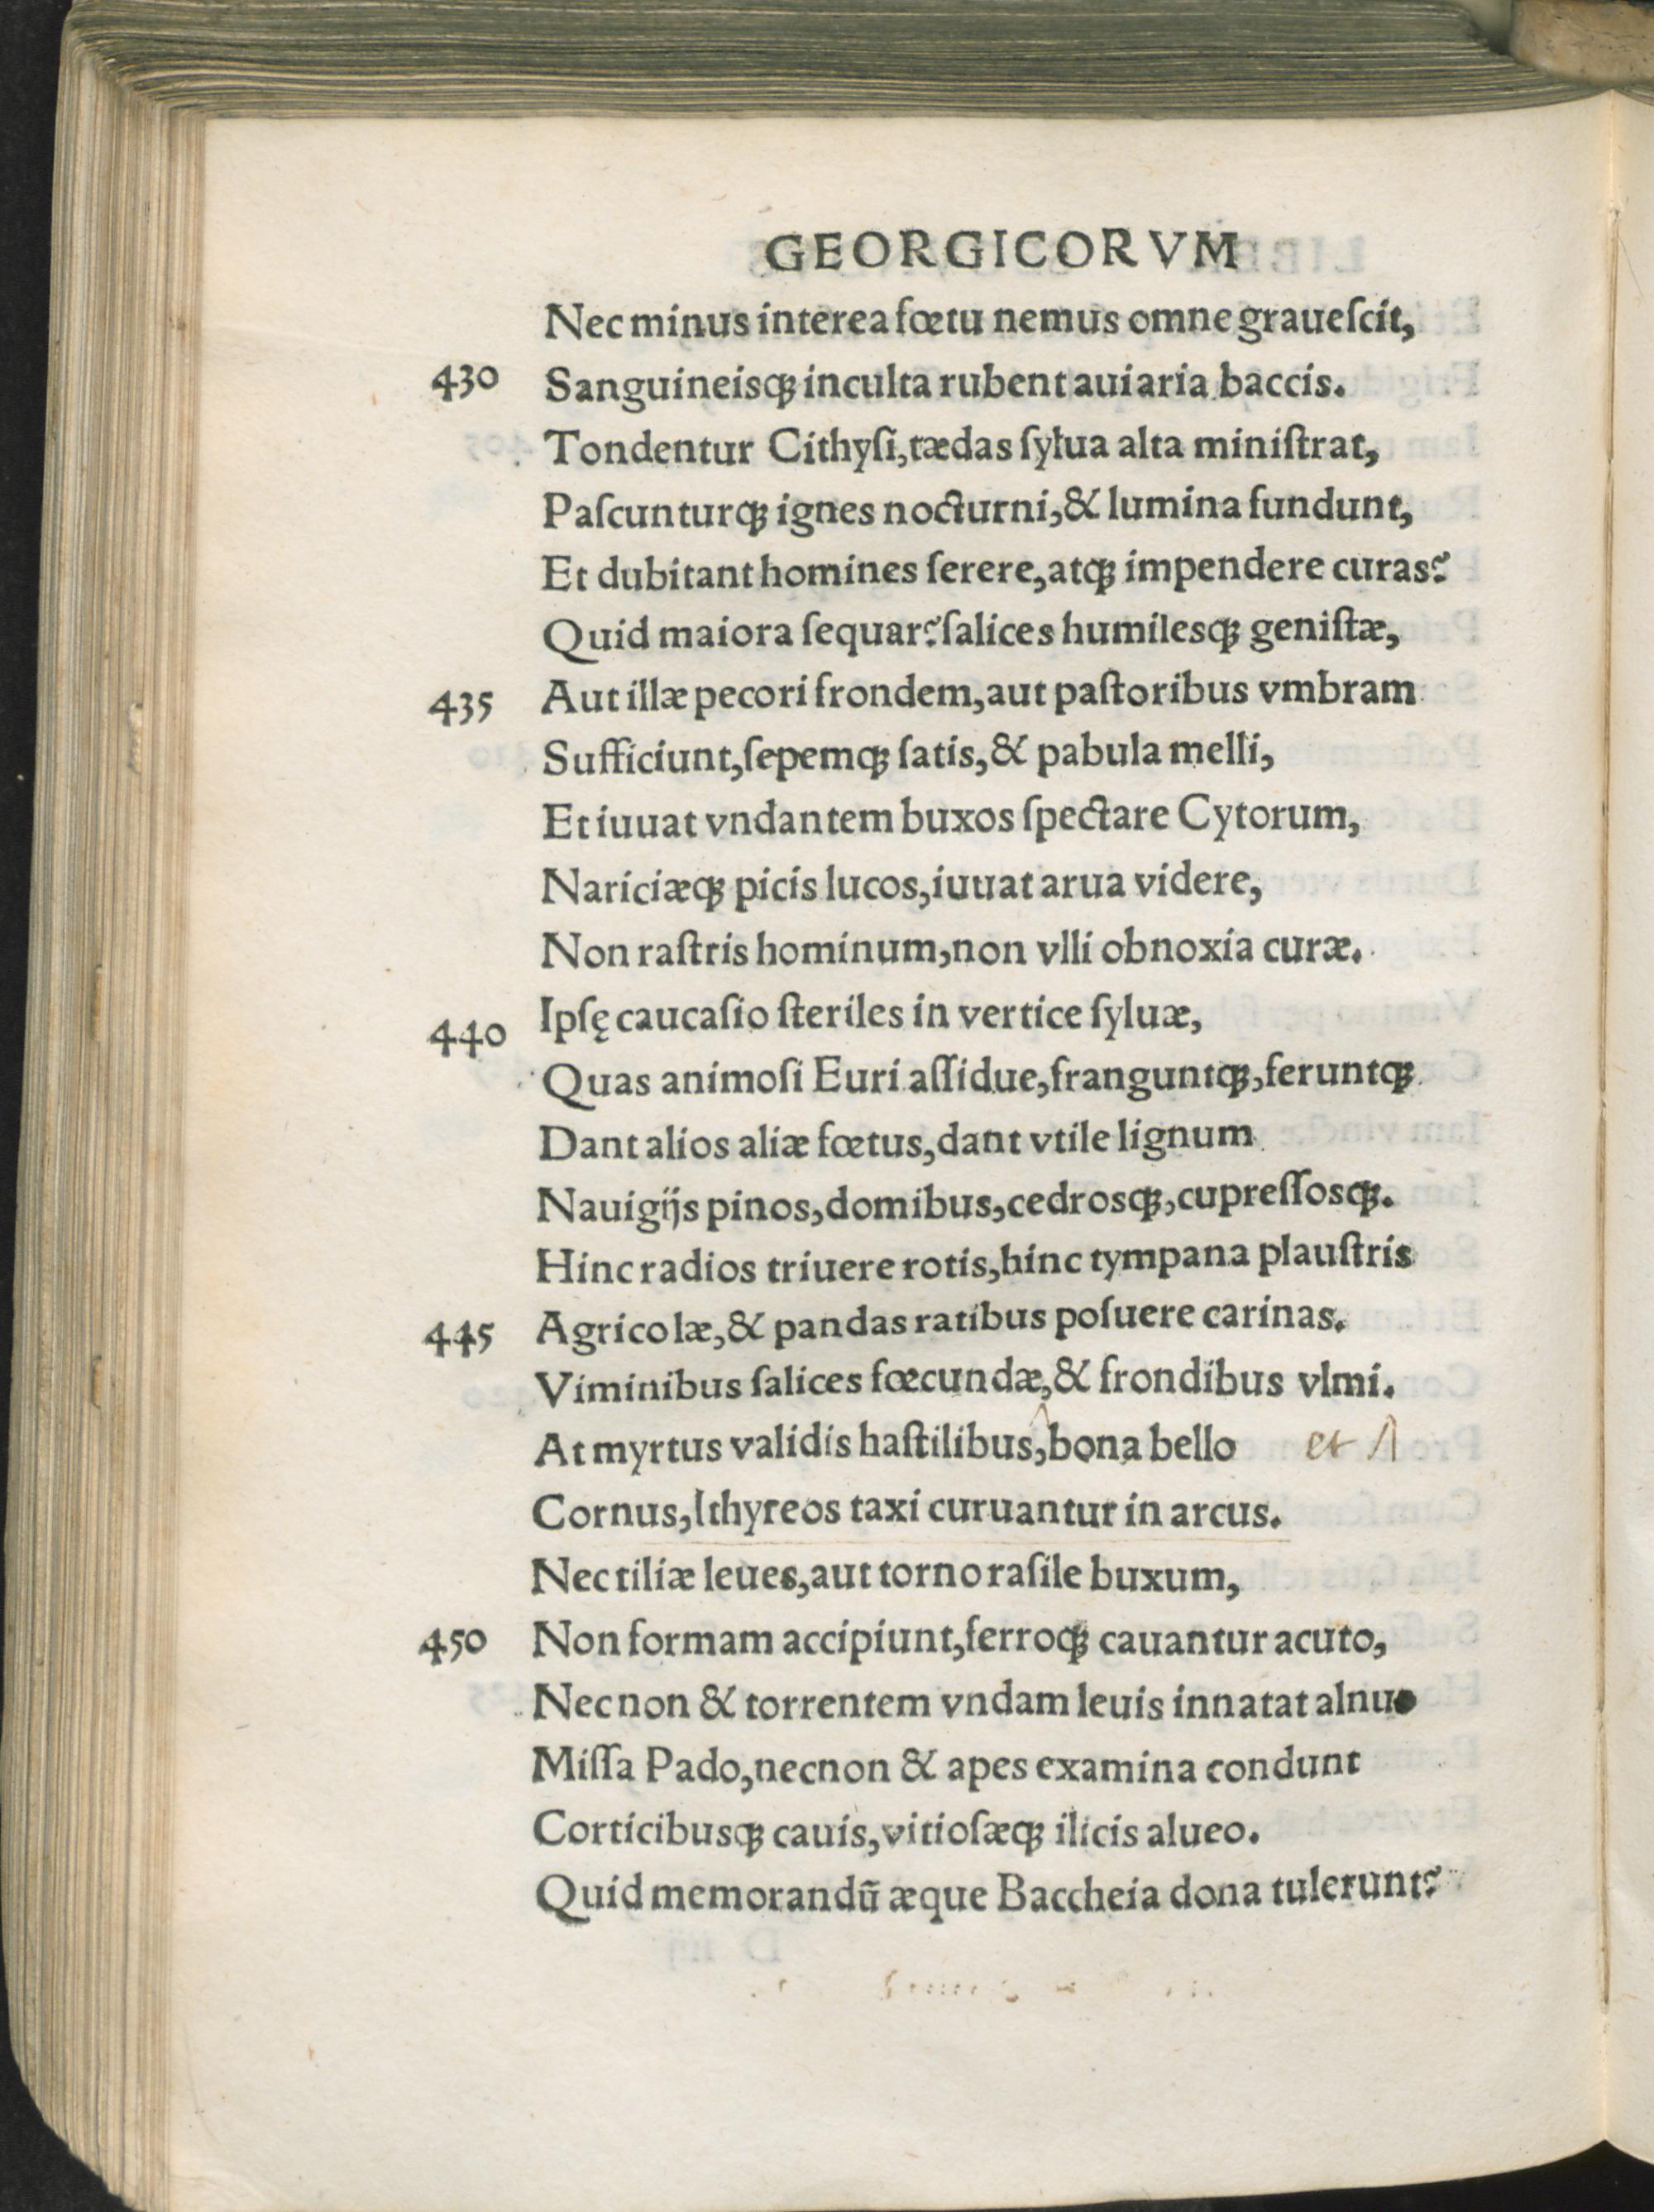 GEORGICORVM
Nec minus interea fœtu nemus omne graueſcit,
430 Sanguineisqꝫ inculta rubent auiaria baccis.
Tondentur Cithyſi, tædas ſylua alta miniſtrat,
Paſcunturqꝫ ignes nocturni, & lumina fundunt,
Et dubitant homines ſerere, atqꝫ impendere curas?
Quid maiora ſequar? ſalices humilesqꝫ geniſtæ,
435 Aut illæ pecori frondem, aut paſtoribus vmbram
Sufficiunt, ſepemqꝫ ſatis, & pabula melli,
Et iuuat vndantem buxos ſpectare Cytorum,
Nariciæqꝫ picis lucos, iuuat arua videre,
Non raſtris hominum, non vlli obnoxia curæ.
440 Ipſę caucaſio ſteriles in vertice ſyluæ,
Quas animoſi Euri aſſidue, franguntqꝫ, feruntqꝫ
Dant alios aliæ fœtus, dant vtile lignum
Nauigijs pinos, domibus, cedrosqꝫ, cupreſſosqꝫ.
Hinc radios triuere rotis, hinc tympana plauſtris
445 Agricolæ, & pandas ratibus poſuere carinas.
Viminibus ſalices fœcundæ, & frondibus vlmi.
At myrtus validis haſtilibus, bona bello et
Cornus, Ithyreos taxi curuantur in arcus.
Nec tiliæ leues, aut torno raſile buxum,
450 Non formam accipiunt, ferroqꝫ cauantur acuto,
Nec non & torrentem vndam leuis innatat alnus
Miſſa Pado, necnon & apes examina condunt
Corticibusqꝫ cauis, vitioſæqꝫ ilicis alueo.
Quid memorandū æque Baccheia dona tulerunt?